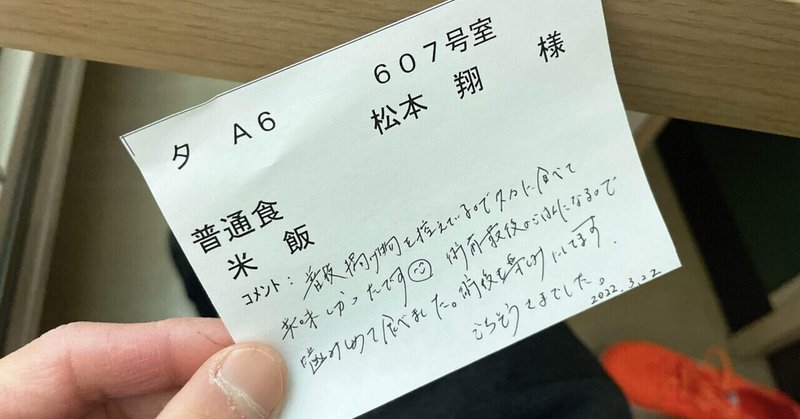 夕 A6 607号室
松本 翔 様
普通食
米飯
コメント：普段揚げ物を控えているので久々に食べて
美味しかったです☺ 術前最後のごはんになるので
噛みしめて食べました。術後も楽しみにしてます。
ごちそうさまでした。
2022.3.22